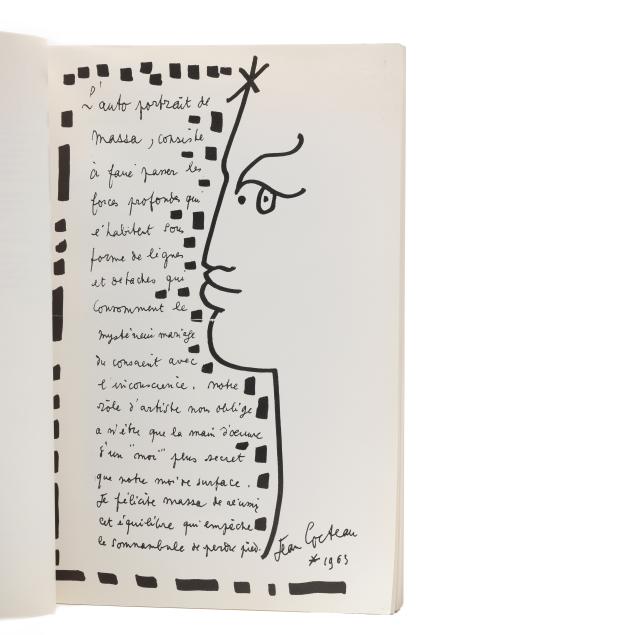 L'auto portrait de
massa, consiste
à faire passer les
forces profondes qui
l'habitent sous
forme de lignes
et de taches qui
couronnent le
mystérieux mariage
du conscient avec
l'inconscience. notre
rôle d'artiste nous oblige
a n'être que la main d'œuvre
d'un "moi" plus secret
que notre moi de surface.
Je félicite massa de réunir
cet équilibre qui empêche
le somnambule de perdre pied.
Jean Cocteau
* 1963